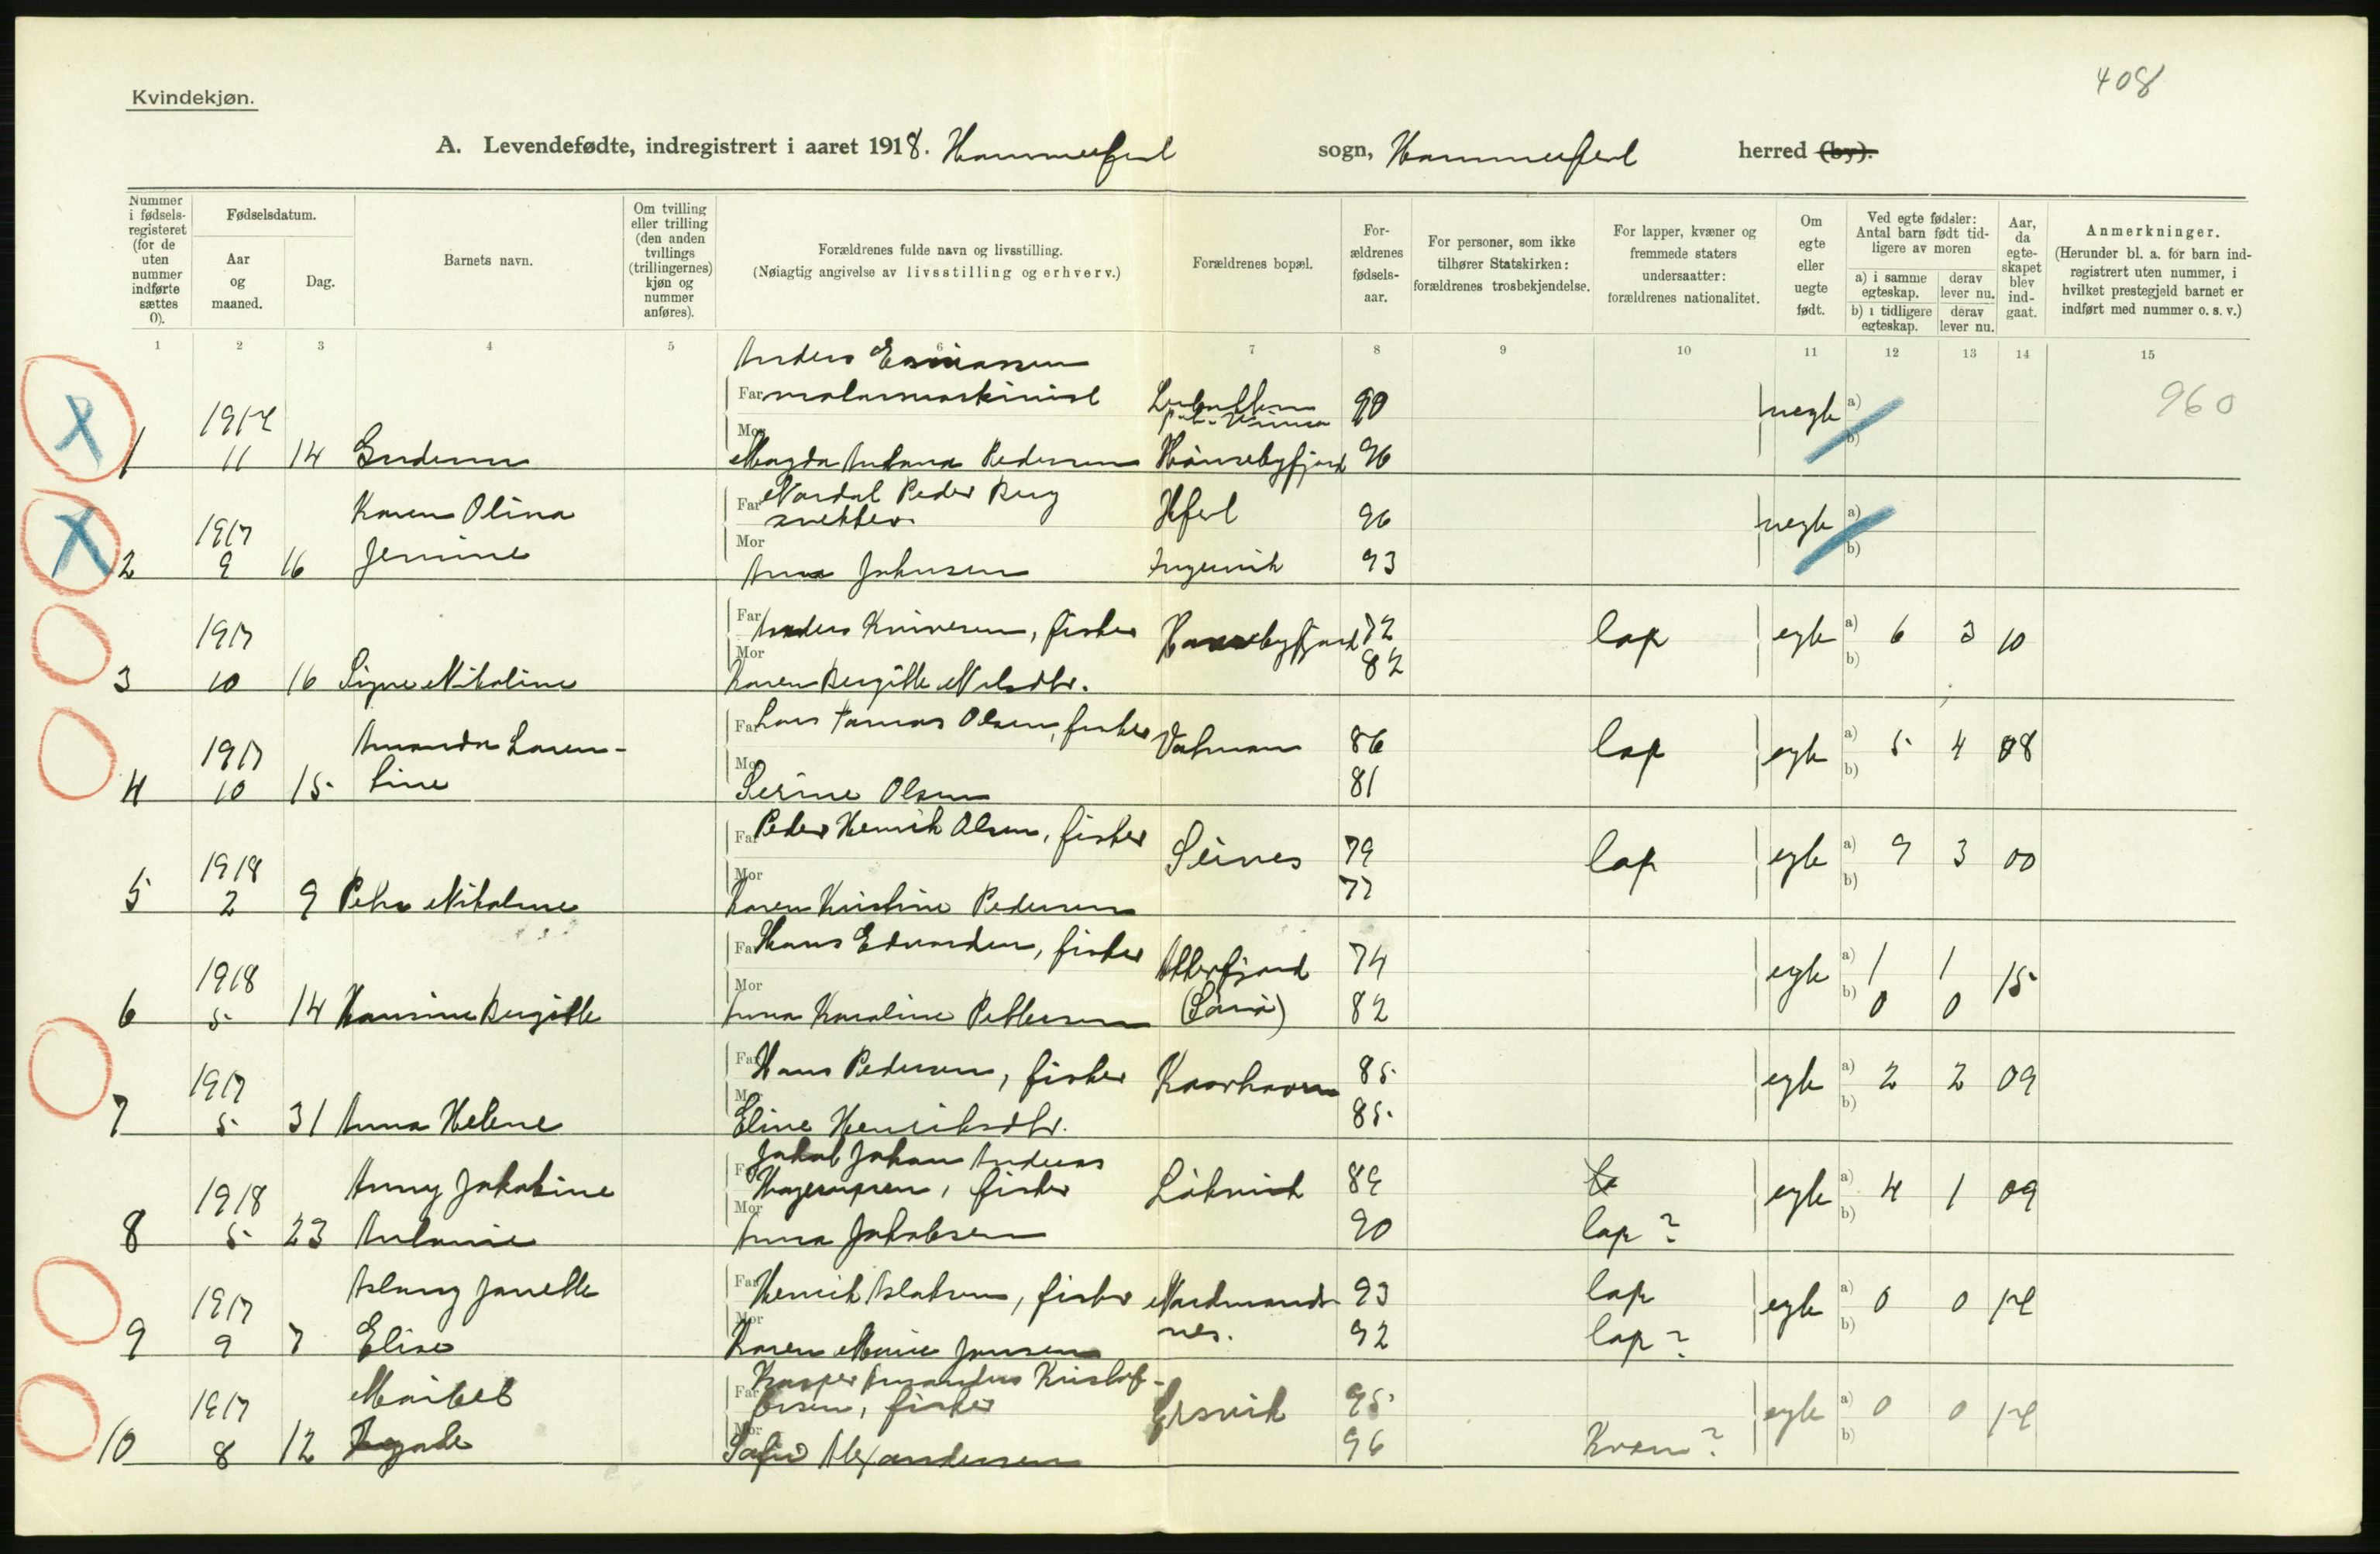 408
Kvindekjøn.
A. Levendefødte, indregistrert i aaret 1918. Hammerfest sogn, Hammerfest herred (by).
Nummer i fødsels-registeret (for de uten nummer indførte sættes 0).
Fødselsdatum.
Aar og maaned.
Dag.
Barnets navn.
Om tvilling eller trilling (den anden tvillings (trillingernes) kjøn og nummer anføres).
Forældrenes fulde navn og livsstilling.
(Nøiagtig angivelse av livsstilling og erhverv.)
Forældrenes bopæl.
For-ældrenes fødsels-aar.
For personer, som ikke tilhører Statskirken: forældrenes trosbekjendelse.
For lapper, kvæner og fremmede staters undersaatter: forældrenes nationalitet.
Om egte eller uegte født.
Ved egte fødsler: Antal barn født tid-ligere av moren
a) i samme egteskap.
derav lever nu.
b) i tidligere egteskap.
derav lever nu.
Aar, da egte-skapet blev ind-gaat.
Anmerkninger.
(Herunder bl. a. for barn ind-registrert uten nummer, i hvilket prestegjeld barnet er indført med nummer o. s. v.)
1 2 3 4 5 6 7 8 9 10 11 12 13 14 15
Anders
Far motormaskinist 90 uegte a) 960
1917 Mor b)
1 11 14 Magda Antona Pedersen Hønsebyfjord 96
Karen Olina Far Nordal Peder Berg Hfest 96 uegte a)
snekker
1917 Mor b)
2 9 16 Jemine Anna Johnsen Ingervik 93
Far Anders Kniversen, fisker Hønsebyfjord 72 lap egte a) 6 3 10
1917 Mor 82 b)
3 10 16 Signe Nikoline Karen Bergitte Nilsdtr.
Far Lars Tomas Olsen, fisker 86 lap egte a) 5 4 08
1917 Amanda Loren-
Mor b)
4 10 15 tine Serine Olsen 81
Far Peder Henrik Olsen, fisker Seines 79 lap egte a) 9 3 00
1918 Mor 77 b)
5 2 9 Petra Nikoline Karen Kristine Pedersen
Far Hans Edvardsen, fisker Akkarfjord 74 egte a) 1 1 15
1918 Mor (Sørø) b) 0 0
6 5 14 Hansine Bergitte Anna Karoline Pettersen 82
Far Hans Pedersen, fisker Kaarhavn 85 egte a) 2 2 09
1917 Mor 85 b)
7 5 31 Anna Helene Eline Henriksdtr.
Jakob Johan Andreas
1918 Anny Jakobine Far Hagerupsen, fisker Løkvik 89 egte a) 4 1 09
Mor b)
8 5 23 Antonie Anna Jakobsen 90 lap ?
Aslaug Janette Far Henrik Aslaksen, fisker Nordmands- 93 lap egte a) 0 0 17
1917 Mor nes. 92 lap ? b)
9 9 7 Elise Karen Marie Jansen
Kasper Amandus Kristof-
1917 Far fersen, fisker 95 egte a) 0 0 17
Mor b)
10 8 12 Sofie Alexandersen 96 Kvæn ?